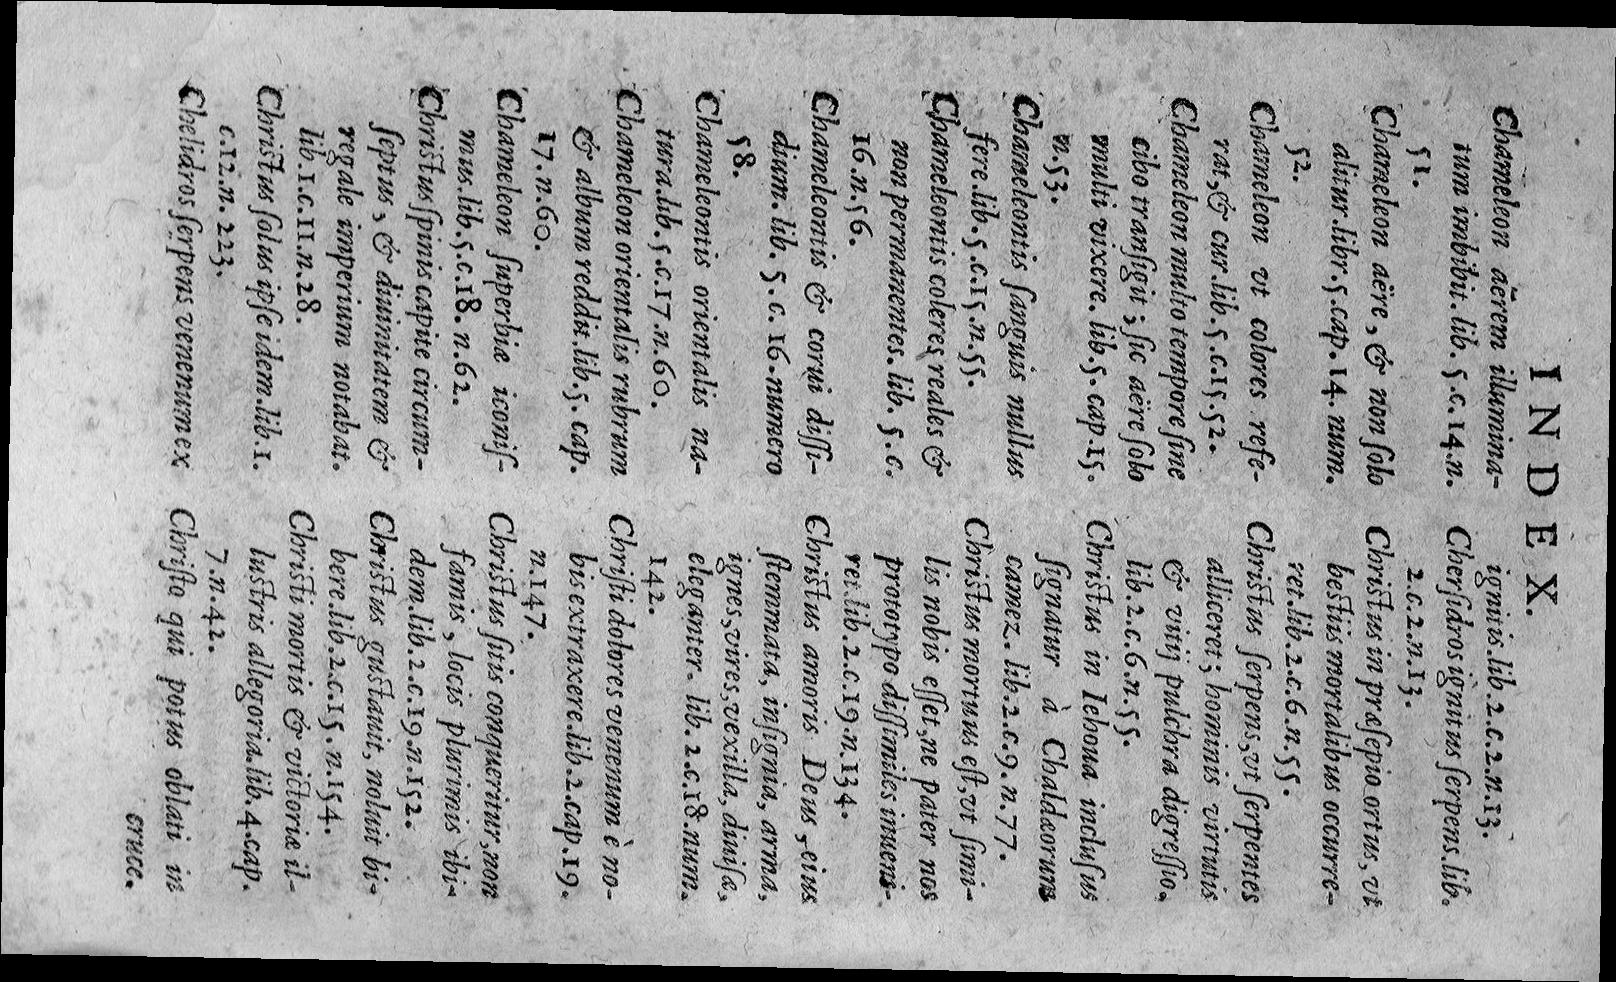 INDEX.
Chameleon aërem illumina-
tum imbibit. lib. 5. c. 14. n.
51.
Chameleon aëre, & non solo
alitur. libr. 5. cap. 14. num.
52.
Chameleon vt colores refe-
rat, & cur. lib. 5. c. 15. 52.
Chameleon multo tempore sine
cibo transigit; sic aëre solo
multi vixere. lib. 5. cap. 15.
n. 53.
Chameleontis sanguis nullus
fere. lib. 5. c. 15. n. 55.
Chameleontis colores reales &
non permanentes. lib. 5. c.
16. n. 56.
Chameleontis & corui dissi-
dium. lib. 5. c. 16. numero
58.
Chameleontis orientalis na-
tura. lib. 5. c. 17. n. 60.
Chameleon orientalis rubrum
& album reddit. lib. 5. cap.
17. n. 60.
Chameleon superbiæ iconis-
mus. lib. 5. c. 18. n. 62.
Christus spinis capite circum-
septus, & diuinitatem &
regale imperium notabat.
lib. 1. c. 11. n. 28.
Christus solus ipse idem. lib. 1.
c. 12. n. 223.
Chelidros serpens venenum ex
ignitis. lib. 2. c. 2. n. 13.
Chersidros ignitus serpens. lib.
2. c. 2. n. 13.
Christus in præsepio ortus, vt
bestiis mortalibus occurre-
ret. lib. 2. c. 6. n. 55.
Christus serpens, vt serpentes
alliceret; hominis virtutis
& vitij pulchra digressio.
lib. 2. c. 6. n. 55.
Christus in Iehoua inclusus
signatur à Chaldæorum
camez. lib. 2. c. 9. n. 77.
Christus mortuus est, vt simi-
lis nobis esset, ne pater nos
prototypo dissimiles inueni-
ret. lib. 2. c. 19. n. 134.
Christus amoris Deus, eius
stemmata, insignia, arma,
ignes, vires, vexilla, diuisa,
eleganter. lib. 2. c. 18. num.
142.
Christi dolores venenum è no-
bis extraxere. lib. 2. cap. 19.
n. 147.
Christus suis conqueritur, non
famis, locis plurimis ibi-
dem. lib. 2. c. 19. n. 152.
Christus gustauit, noluit bi-
bere. lib. 2. c. 15. n. 154.
Christi mortis & victoriæ il-
lustris allegoria. lib. 4. cap.
7. n. 42.
Christo qui potus oblati in
cruce.